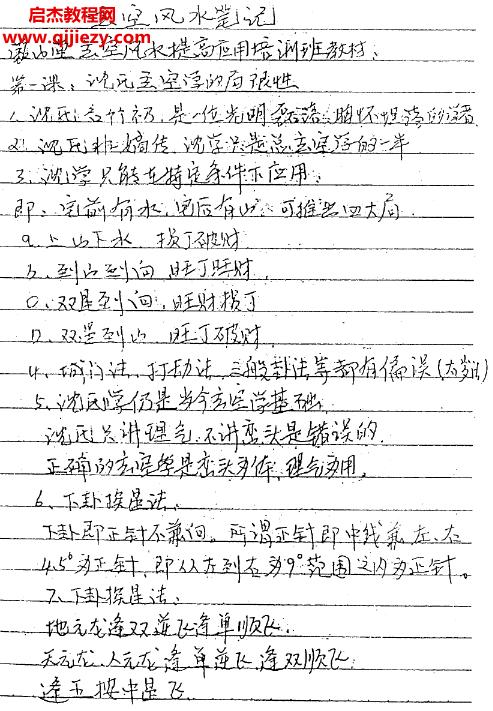 启杰教程网
www.qijiezy.com
玄空风水笔记
玄空风水提高应用培训班教材:
第一课:沈氏玄空学的局限性
1、沈氏名竹礽,是一位光明磊落、胸怀坦荡的学者
2、沈氏非嫡传,沈学只是总玄空学的一半
3、沈学只能在特定条件下应用:
即:宅前有水,宅后有山,可推出四大局
a、上山下水,损丁破财
b、到山到向,旺丁旺财,
C、双星到向,旺财损丁
D、双星到山,旺丁破财,
4、城门法、打劫法、三般卦法等都有偏误
5、沈氏学仍是当今玄空学基础,
沈氏只讲理气,不讲峦头是错误的
正确的玄空学是峦头为体,理气为用,
6、下卦挨星法、
下卦即正针不兼向。所谓正针即中线兼左、右
4.5°为正针,即从左到右为9°范围之内为正针。
7、下卦挨星法:
地元龙逢双逆飞逢单顺飞,
天元龙、人元龙逢单逆飞,逢双顺飞,
逢五按中星飞.